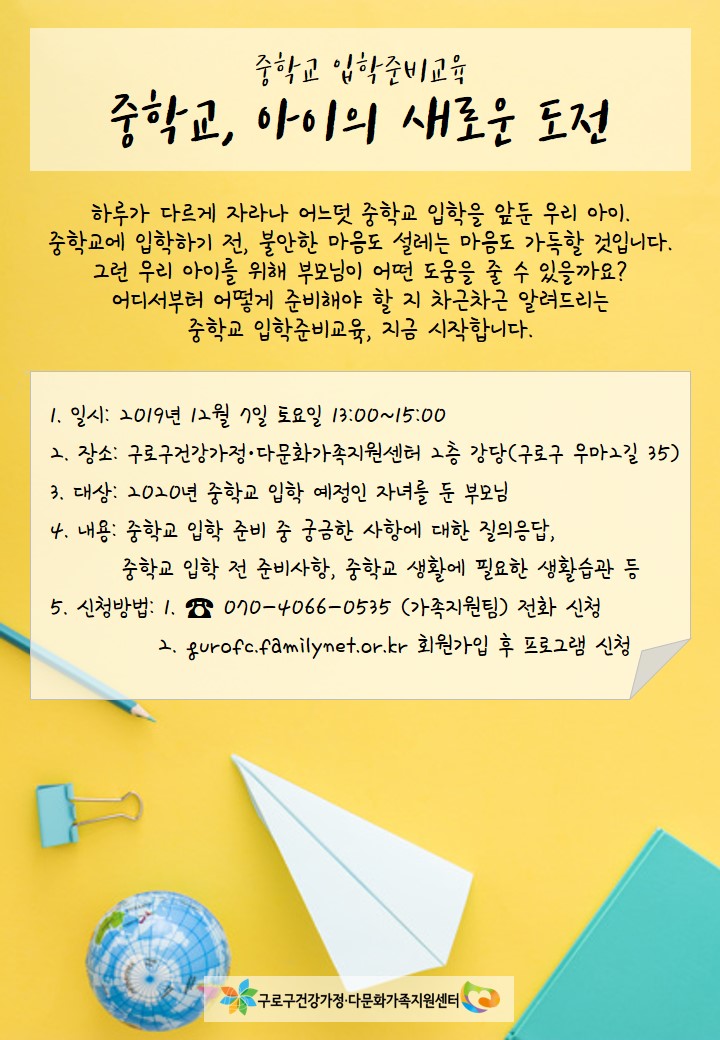 중학교 입학준비교육
중학교, 아이의 새로운 도전
하루가 다르게 자라나 어느덧 중학교 입학을 앞둔 우리 아이.
중학교에 입학하기 전, 불안한 마음도 설레는 마음도 가득할 것입니다.
그런 우리 아이를 위해 부모님이 어떤 도움을 줄 수 있을까요?
어디서부터 어떻게 준비해야 할 지 차근차근 알려드리는
중학교 입학준비교육, 지금 시작합니다.
1. 일시: 2019년 12월 7일 토요일 13:00~15:00
2. 장소: 구로구건강가정·다문화가족지원센터 2층 강당(구로구 우마2길 35)
3. 대상: 2020년 중학교 입학 예정인 자녀를 둔 부모님
4. 내용: 중학교 입학 준비 중 궁금한 사항에 대한 질의응답,
중학교 입학 전 준비사항, 중학교 생활에 필요한 생활습관 등
5. 신청방법: 1. ☎ 070-4066-0535 (가족지원팀) 전화 신청
2. gurofc.familynet.or.kr 회원가입 후 프로그램 신청
구로구건강가정·다문화가족지원센터